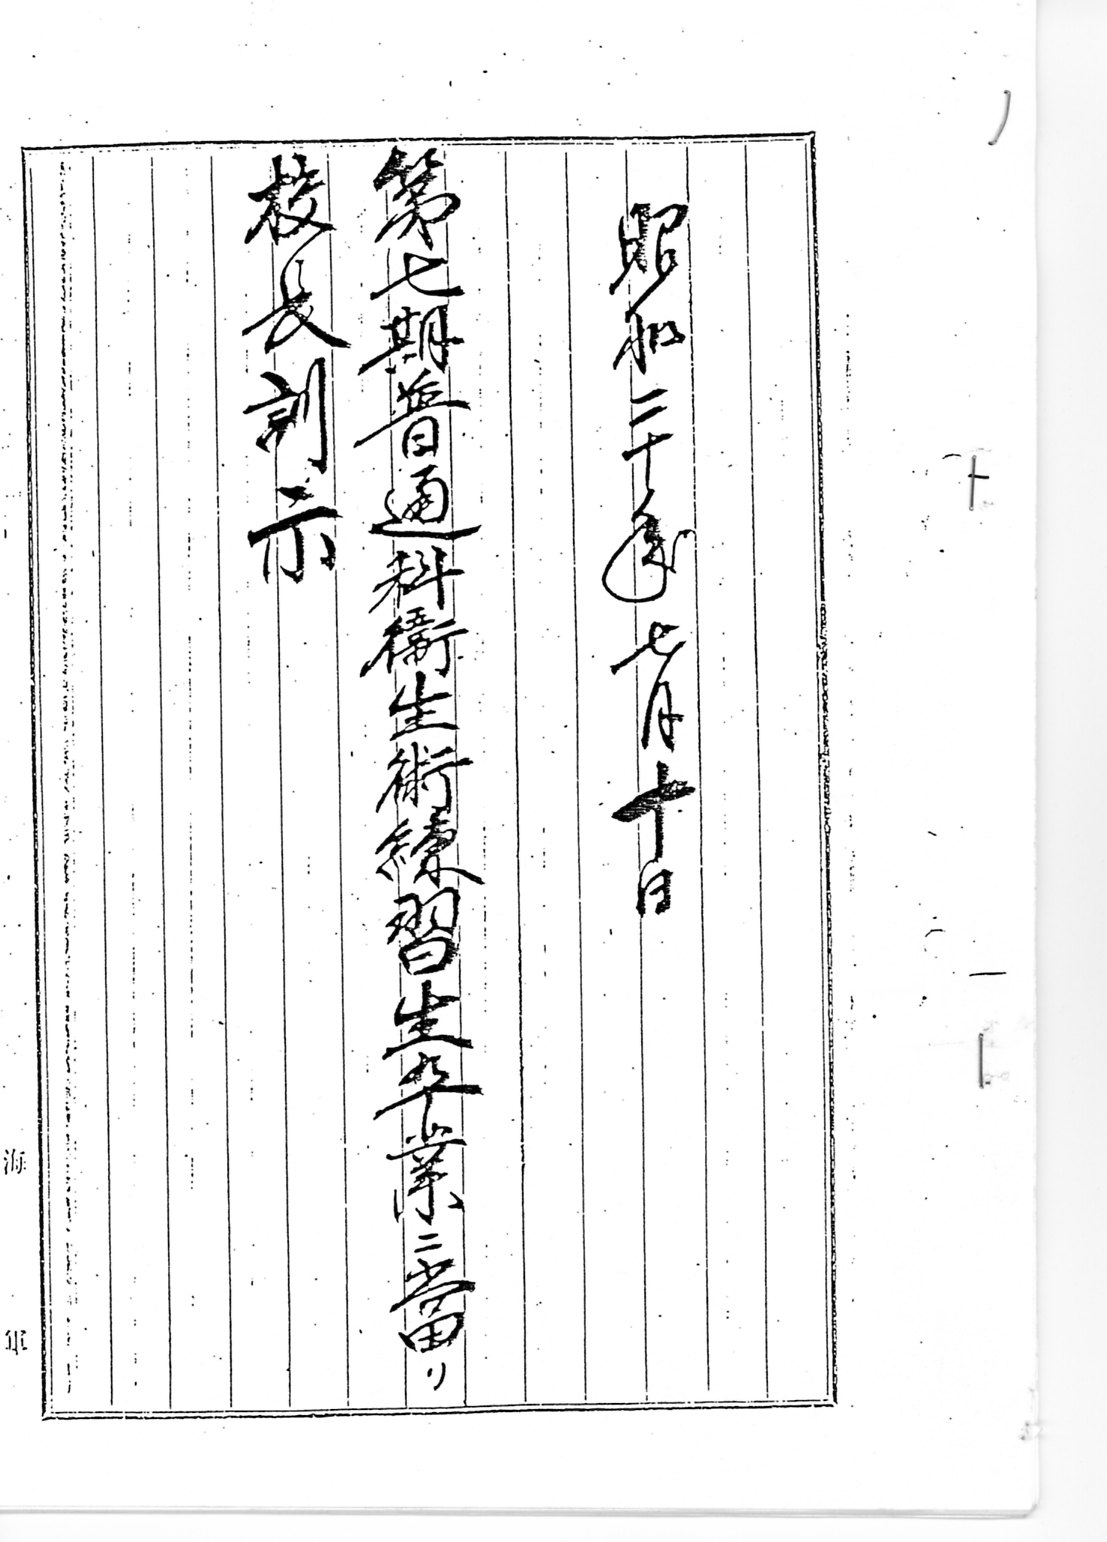 昭和二十年七月十日
第七期普通科衞生術練習生卒業ニ當リ
校長訓示
海軍